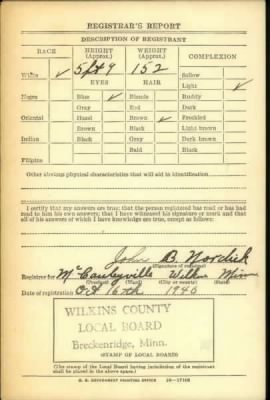 REGISTRAR'S REPORT
DESCRIPTION OF REGISTRANT
RACE HEIGHT (Approx.) WEIGHT (Approx.) COMPLEXION
White ✓ 5 ft 9 152 Sallow
EYES HAIR Light ✓
Negro Blue ✓ Blonde Ruddy
Gray Red Dark
Oriental Hazel Brown ✓ Freckled
Brown Black Light brown
Indian Black Gray Dark brown
Bald Black
Filipino
Other obvious physical characteristics that will aid in identification
I certify that my answers are true; that the person registered has read or has had
read to him his own answers; that I have witnessed his signature or mark and that
all of his answers of which I have knowledge are true, except as follows:
John B. Nordick
(Signature of registrar)
Registrar for McCauleyville Wilkin Minn
(Precinct) (Ward) (City or county) (State)
Date of registration Oct 16th 1940
WILKINS COUNTY
LOCAL BOARD
Breckenridge, Minn.
(STAMP OF LOCAL BOARD)
(The stamp of the Local Board having jurisdiction of the registrant
shall be placed in the above space.)
U. S. GOVERNMENT PRINTING OFFICE 16—17105